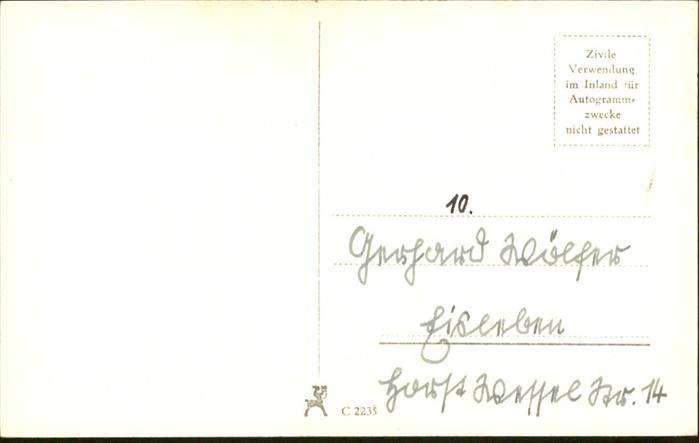 Zivile
Verwendung
im Inland für
Autogramm-
zwecke
nicht gestattet
10.
Gerhard Wölfer
Eisleben
Horst Wessel Str. 14
C 2235